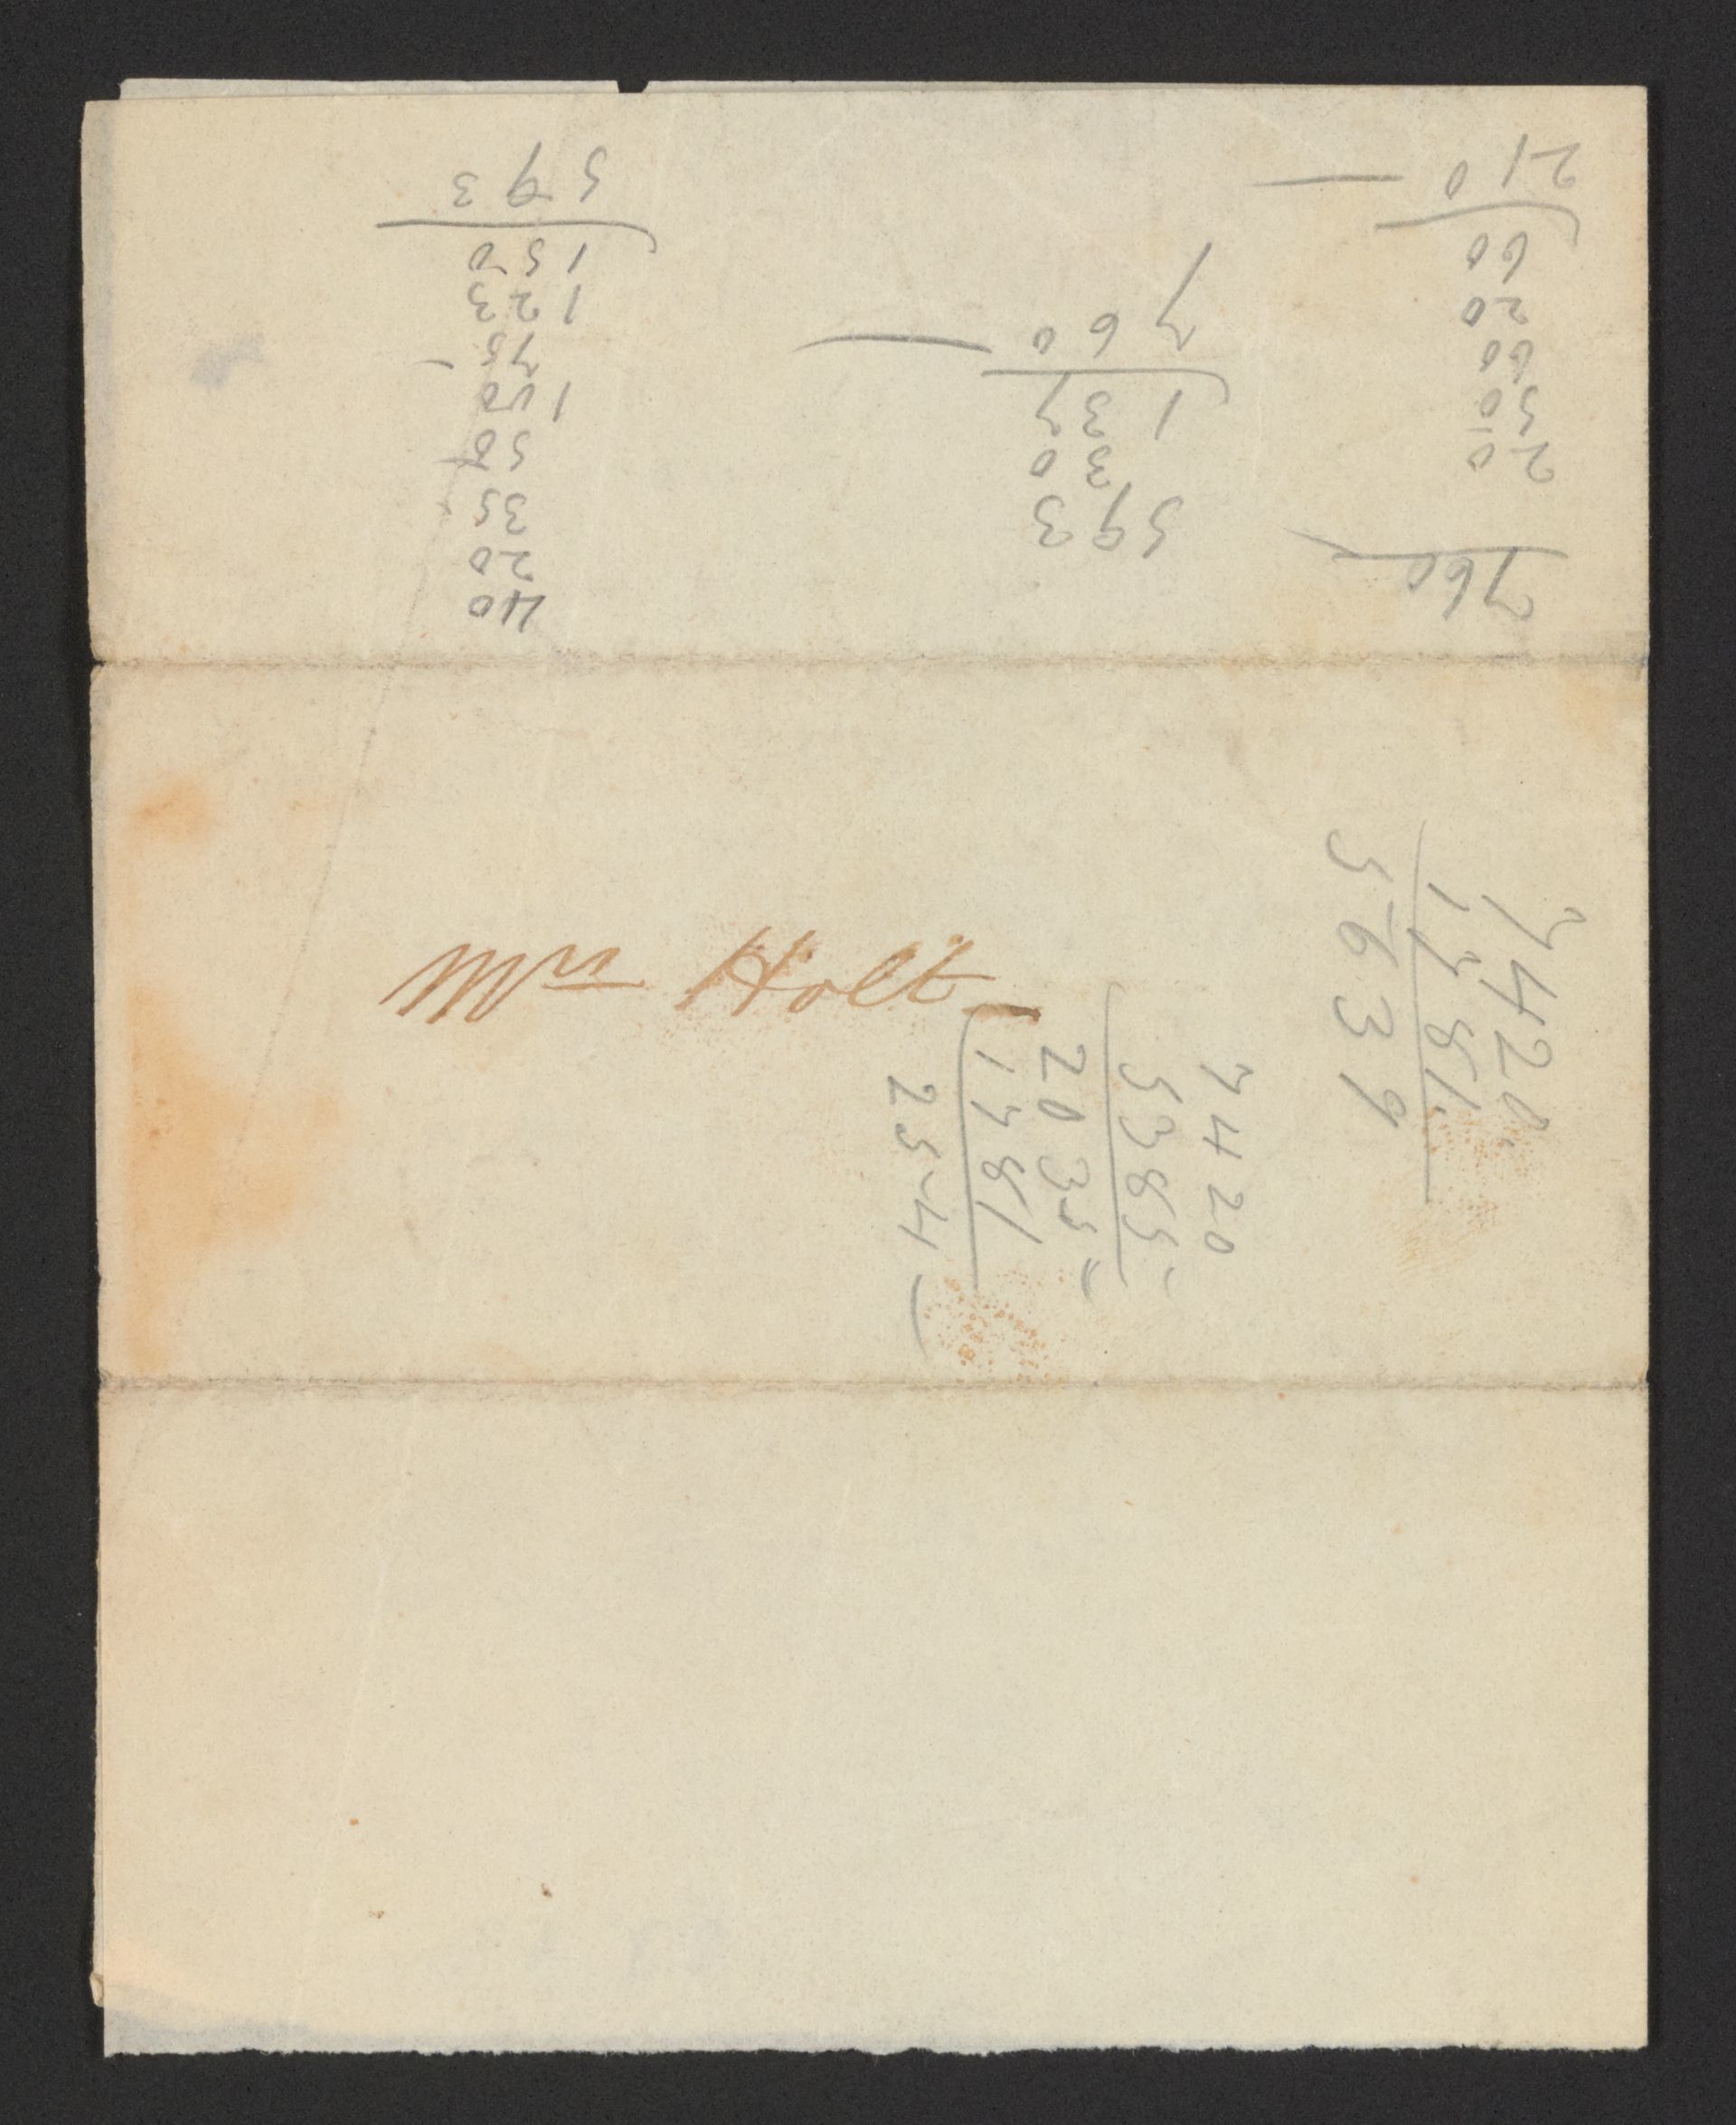 760
20
50
60
20
60
210
593
30
137
760
40
20
35
50
100
75
123
150
593
Mrs Holt
7420
1781
5639
7420
5385
2035
1781
254